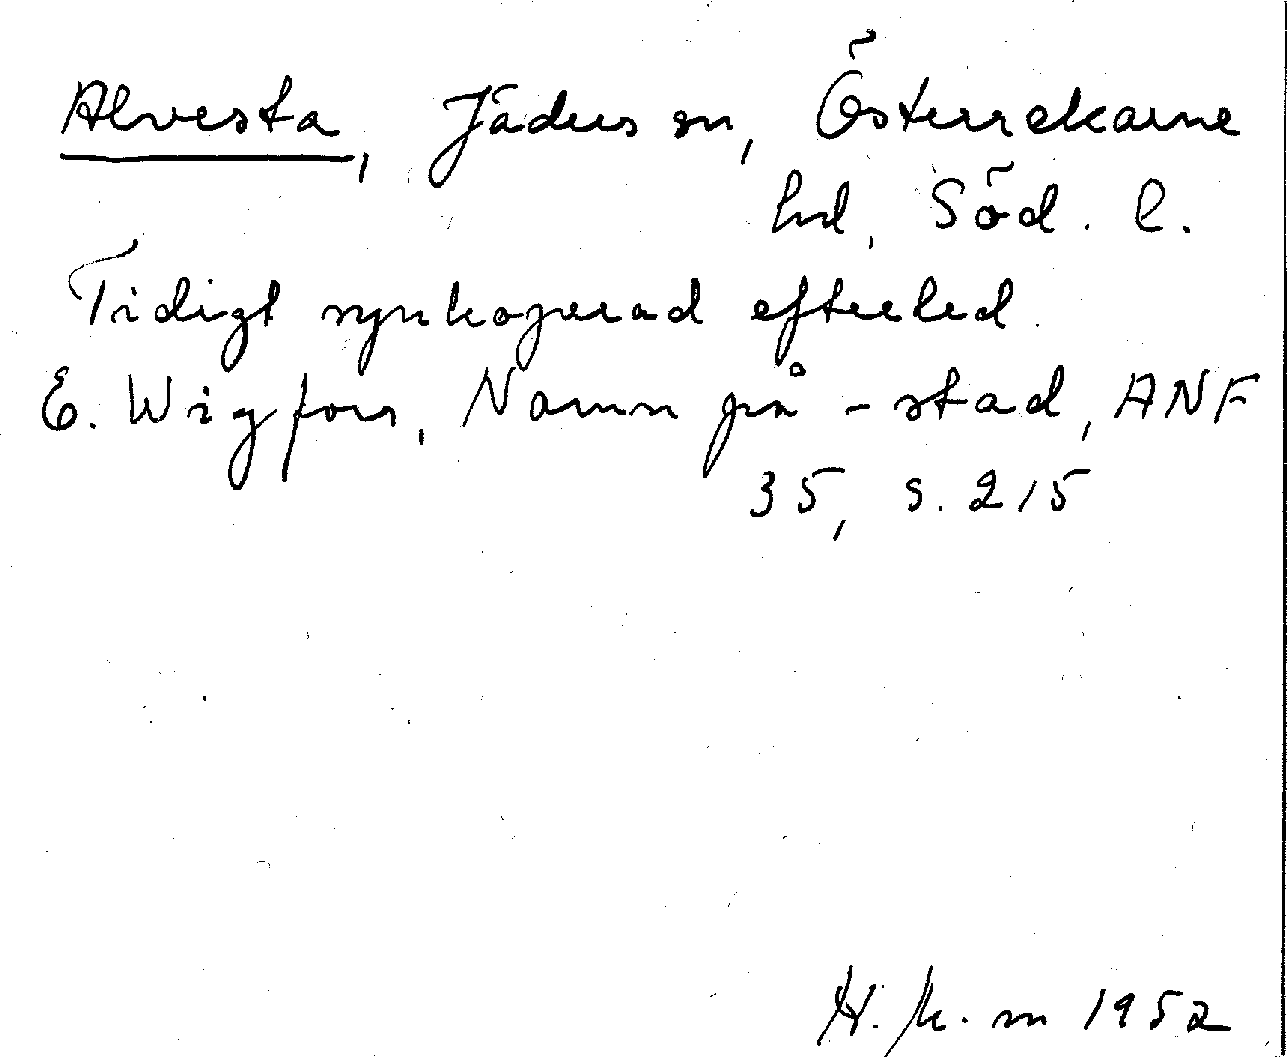 Alvesta, Jäders sn, Österrekarne
hd, Söd. l.
Tidigt synkoperad efterled.
E. Wigfors, Namn på -stad, ANF
35, s. 215
H. K-m 1952